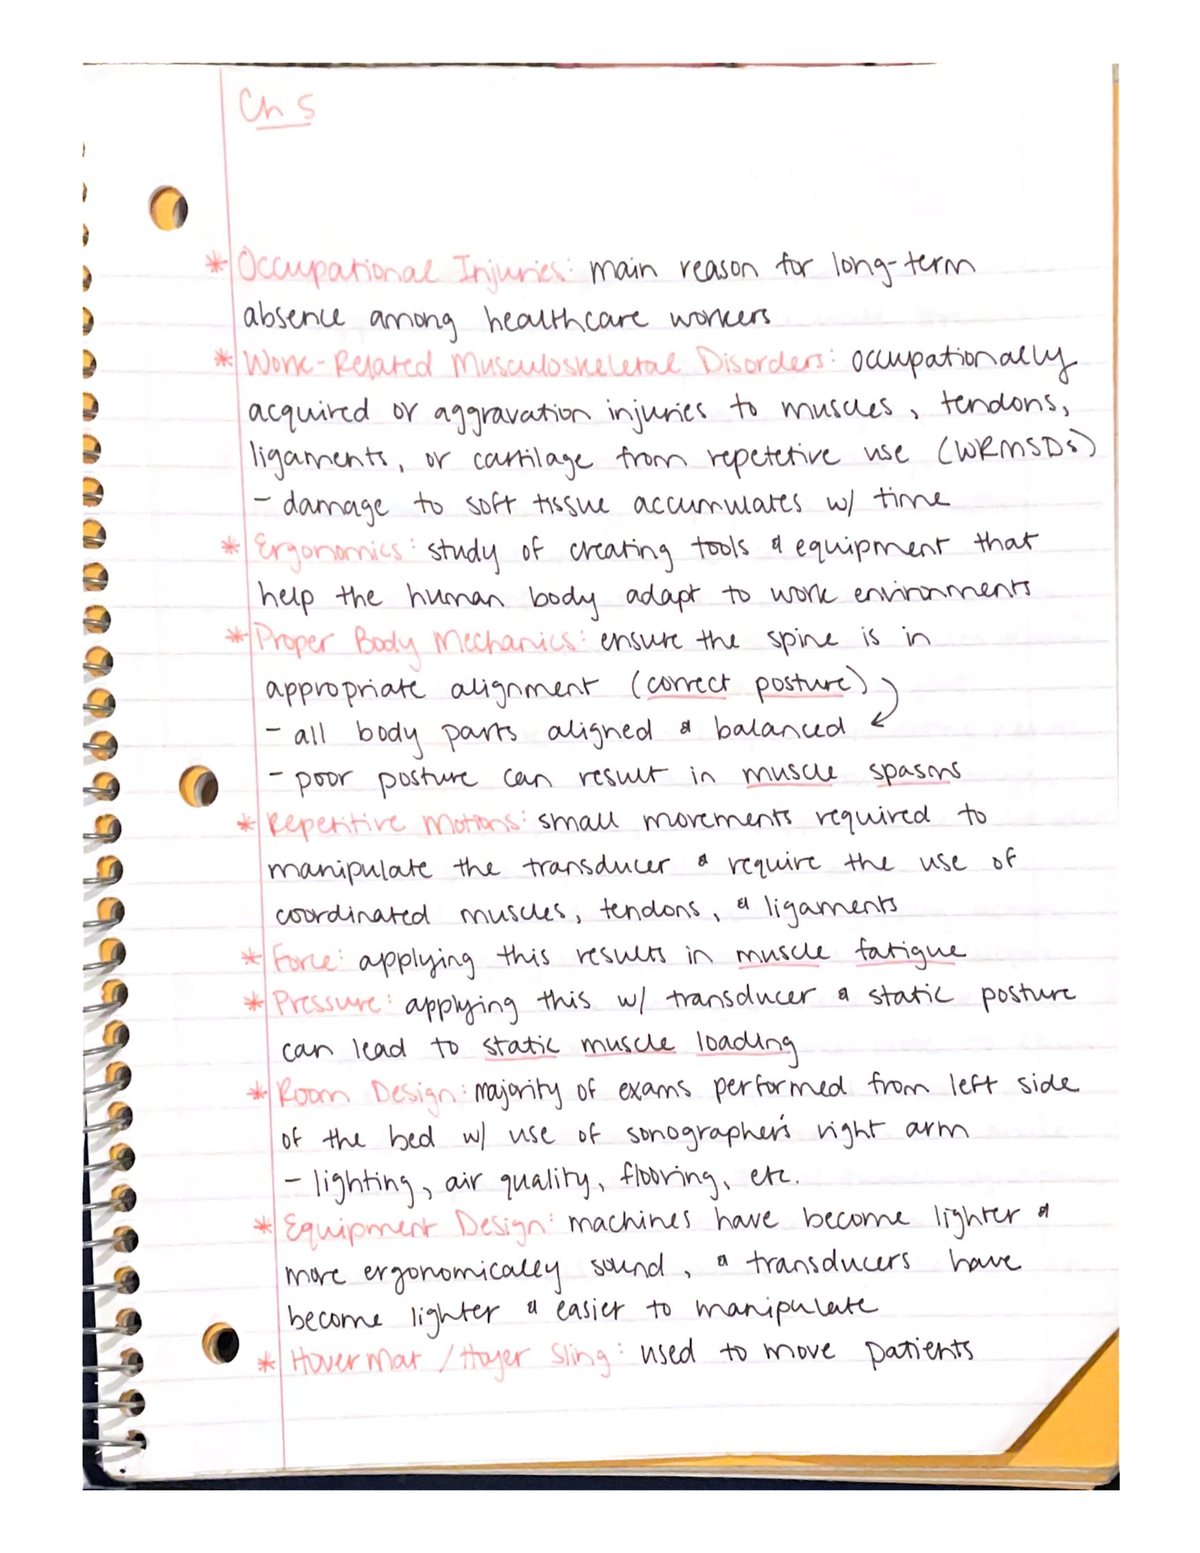 Ch 5
* Occupational Injuries: main reason for long-term
absence among healthcare workers
* Work-Related Musculoskeletal Disorders: occupationally
acquired or aggravation injuries to muscles, tendons,
ligaments, or cartilage from repetetive use (WRMSDs)
- damage to soft tissue accumulates w/ time
* Ergonomics: study of creating tools & equipment that
help the human body adapt to work environments
* Proper Body Mechanics: ensure the spine is in
appropriate alignment (correct posture)
- all body parts aligned & balanced
- poor posture can result in muscle spasms
* Repetitive Motions: small movements required to
manipulate the transducer & require the use of
coordinated muscles, tendons, & ligaments
* Force: applying this results in muscle fatigue
* Pressure: applying this w/ transducer & static posture
can lead to static muscle loading
* Room Design: majority of exams performed from left side
of the bed w/ use of sonographer's right arm
- lighting, air quality, flooring, etc.
* Equipment Design: machines have become lighter &
more ergonomically sound, & transducers have
become lighter & easier to manipulate
* Hover Mat / Hoyer Sling: used to move patients